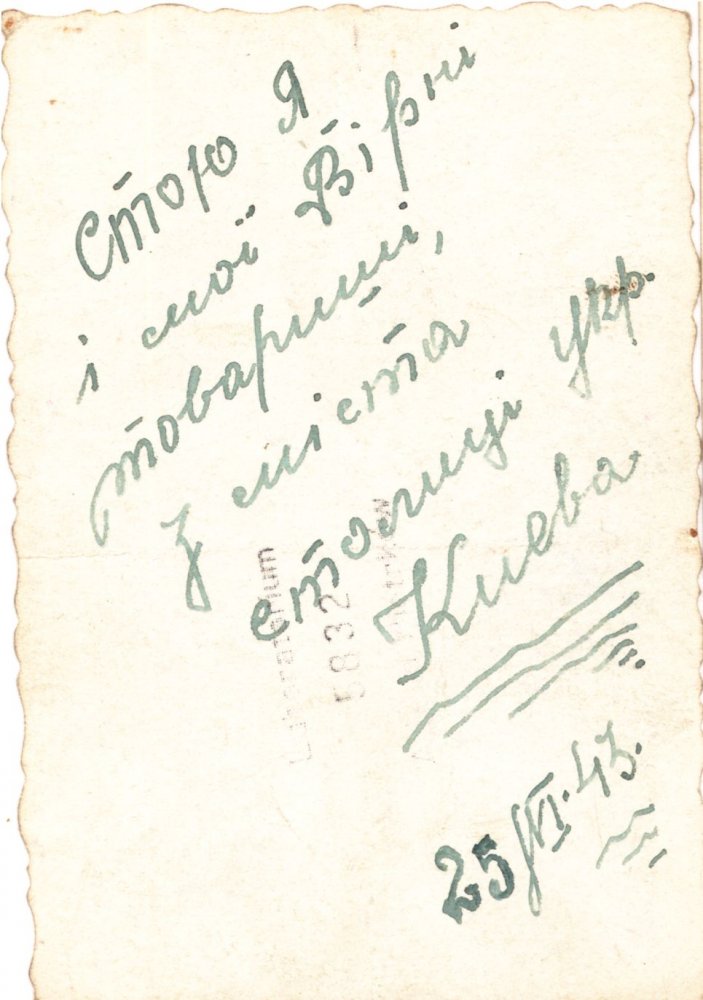 Стою Я
і мої Вірні
товариші,
з міста
столиці Укр.
Києва
25/VI.43.
5832